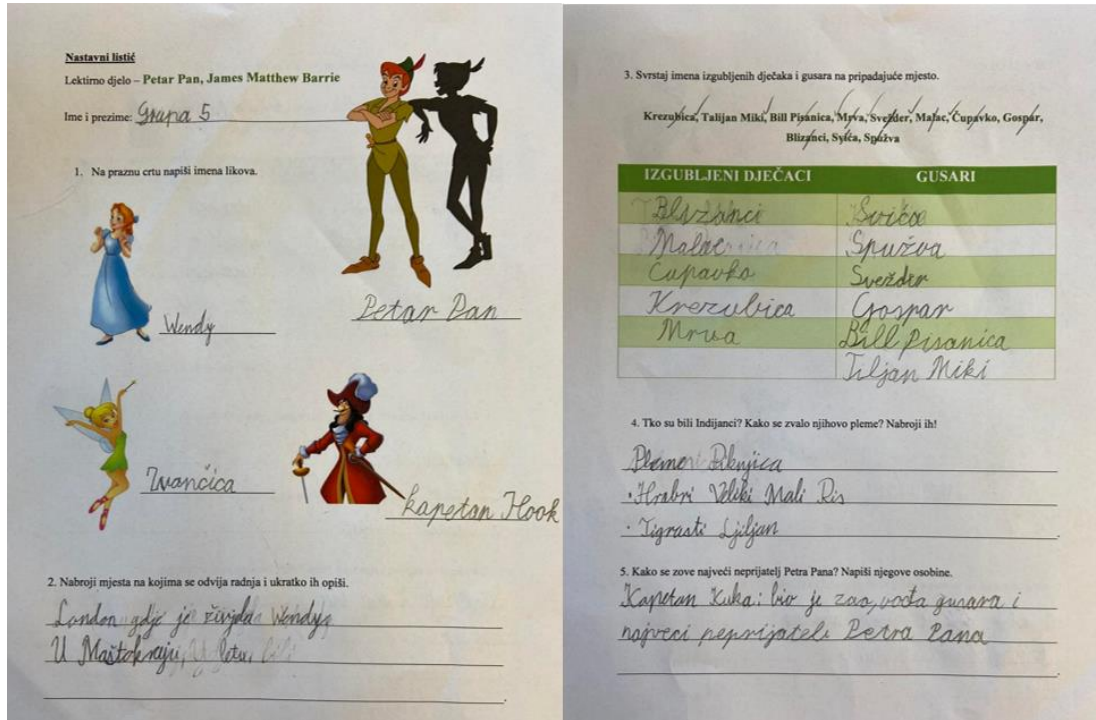 Nastavni listić
Lektirno djelo – Petar Pan, James Matthew Barrie
Ime i prezime: Grupa 5
1. Na praznu crtu napiši imena likova.
Wendy
Petar Pan
Zvančica
kapetan Hook
2. Nabroji mjesta na kojima se odvija radnja i ukratko ih opiši.
London gdje je živjela Wendy
U Maštokraju,
3. Svrstaj imena izgubljenih dječaka i gusara na pripadajuće mjesto.
Krezubica, Talijan Miki, Bill Pisanica, Mrva, Svežder, Malac, Čupavko, Gospar,
Blizanci, Svića, Spužva
IZGUBLJENI DJEČACI GUSARI
Blizanci Svića
Malac Spužva
Čupavko Svežder
Krezubica Gospar
Mrva Bill Pisanica
Tiljan Miki
4. Tko su bili Indijanci? Kako se zvalo njihovo pleme? Nabroji ih!
Pleme Piknjica
• Hrabri Veliki Mali Ris
• Tigrasti Ljiljan
5. Kako se zove najveći neprijatelj Petra Pana? Napiši njegove osobine.
Kapetan Kuka: bio je zao, vođa gusara i
najveci neprijatelj Petra Pana